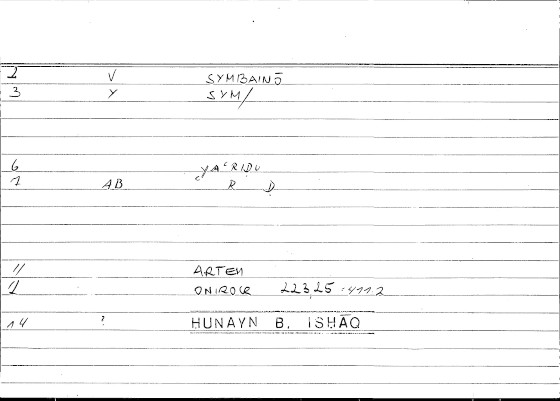 2 V SYMBAINŌ
3 Y SYM/
6 YAʿRIḌU
1 AB ʿ R Ḍ
11 ARTEM
1 ONIROCR 223,25 411,2
14 ? HUNAYN B. ISHĀQ